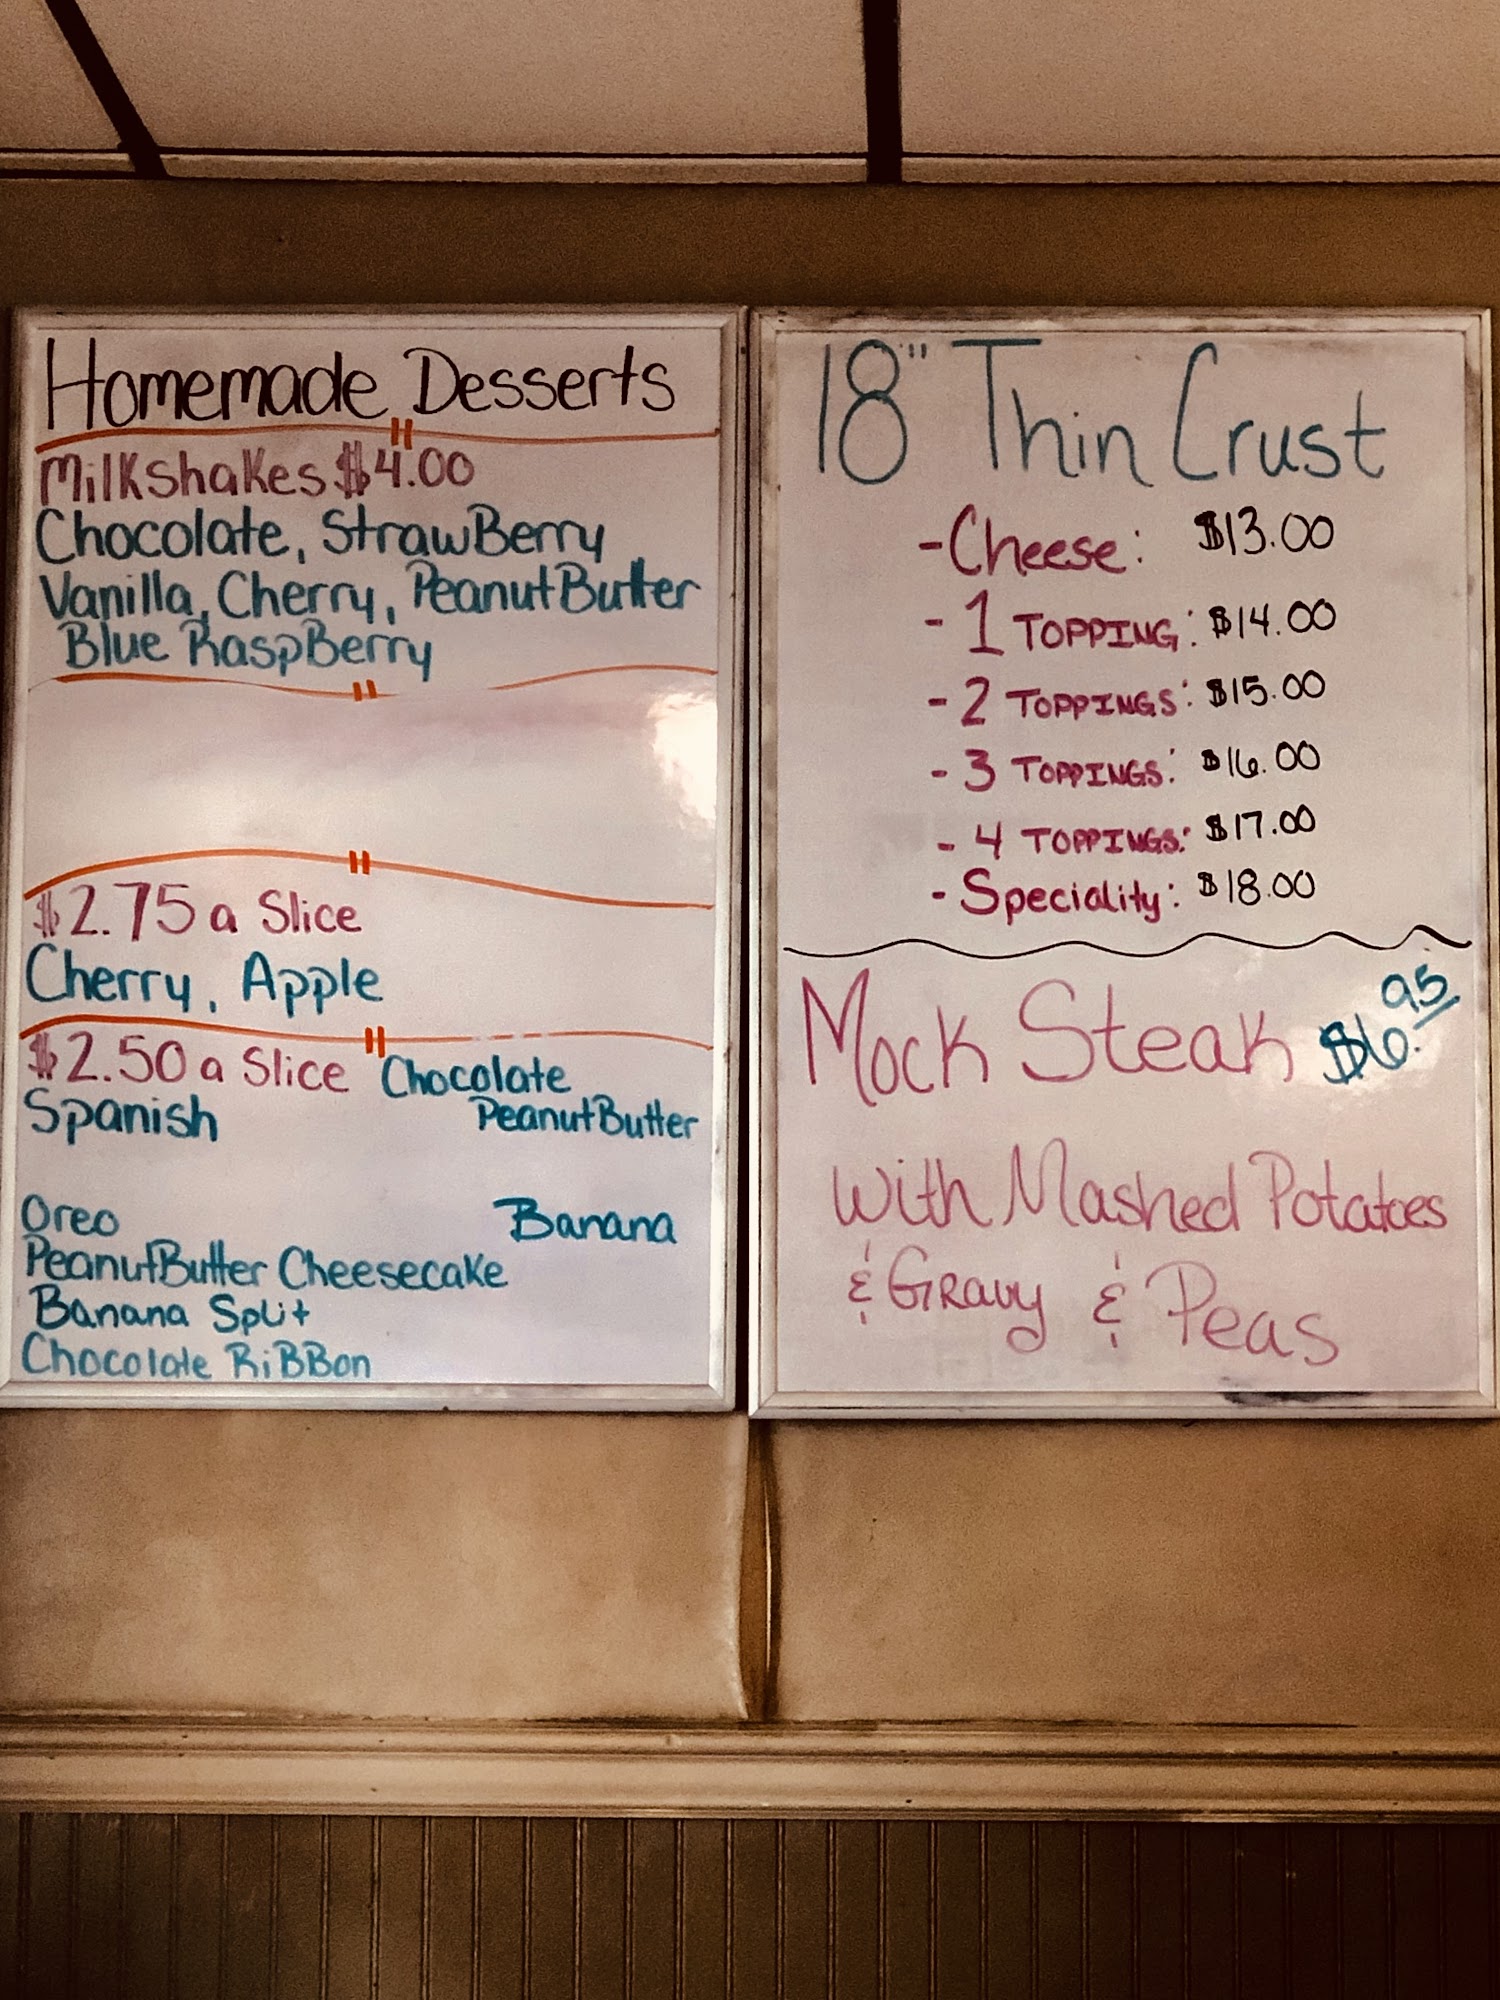 Homemade Desserts
Milkshakes $4.00
Chocolate, StrawBerry
Vanilla, Cherry, PeanutButter
Blue RaspBerry
$2.75 a Slice
Cherry, Apple
$2.50 a Slice Chocolate
Spanish PeanutButter
Oreo Banana
PeanutButter Cheesecake
Banana Split
Chocolate RiBBon
18" Thin Crust
-Cheese: $13.00
- 1 TOPPING: $14.00
- 2 TOPPINGS: $15.00
- 3 TOPPINGS: $16.00
- 4 TOPPINGS: $17.00
- Speciality: $18.00
Mock Steak $6.95
with Mashed Potatoes
& Gravy & Peas